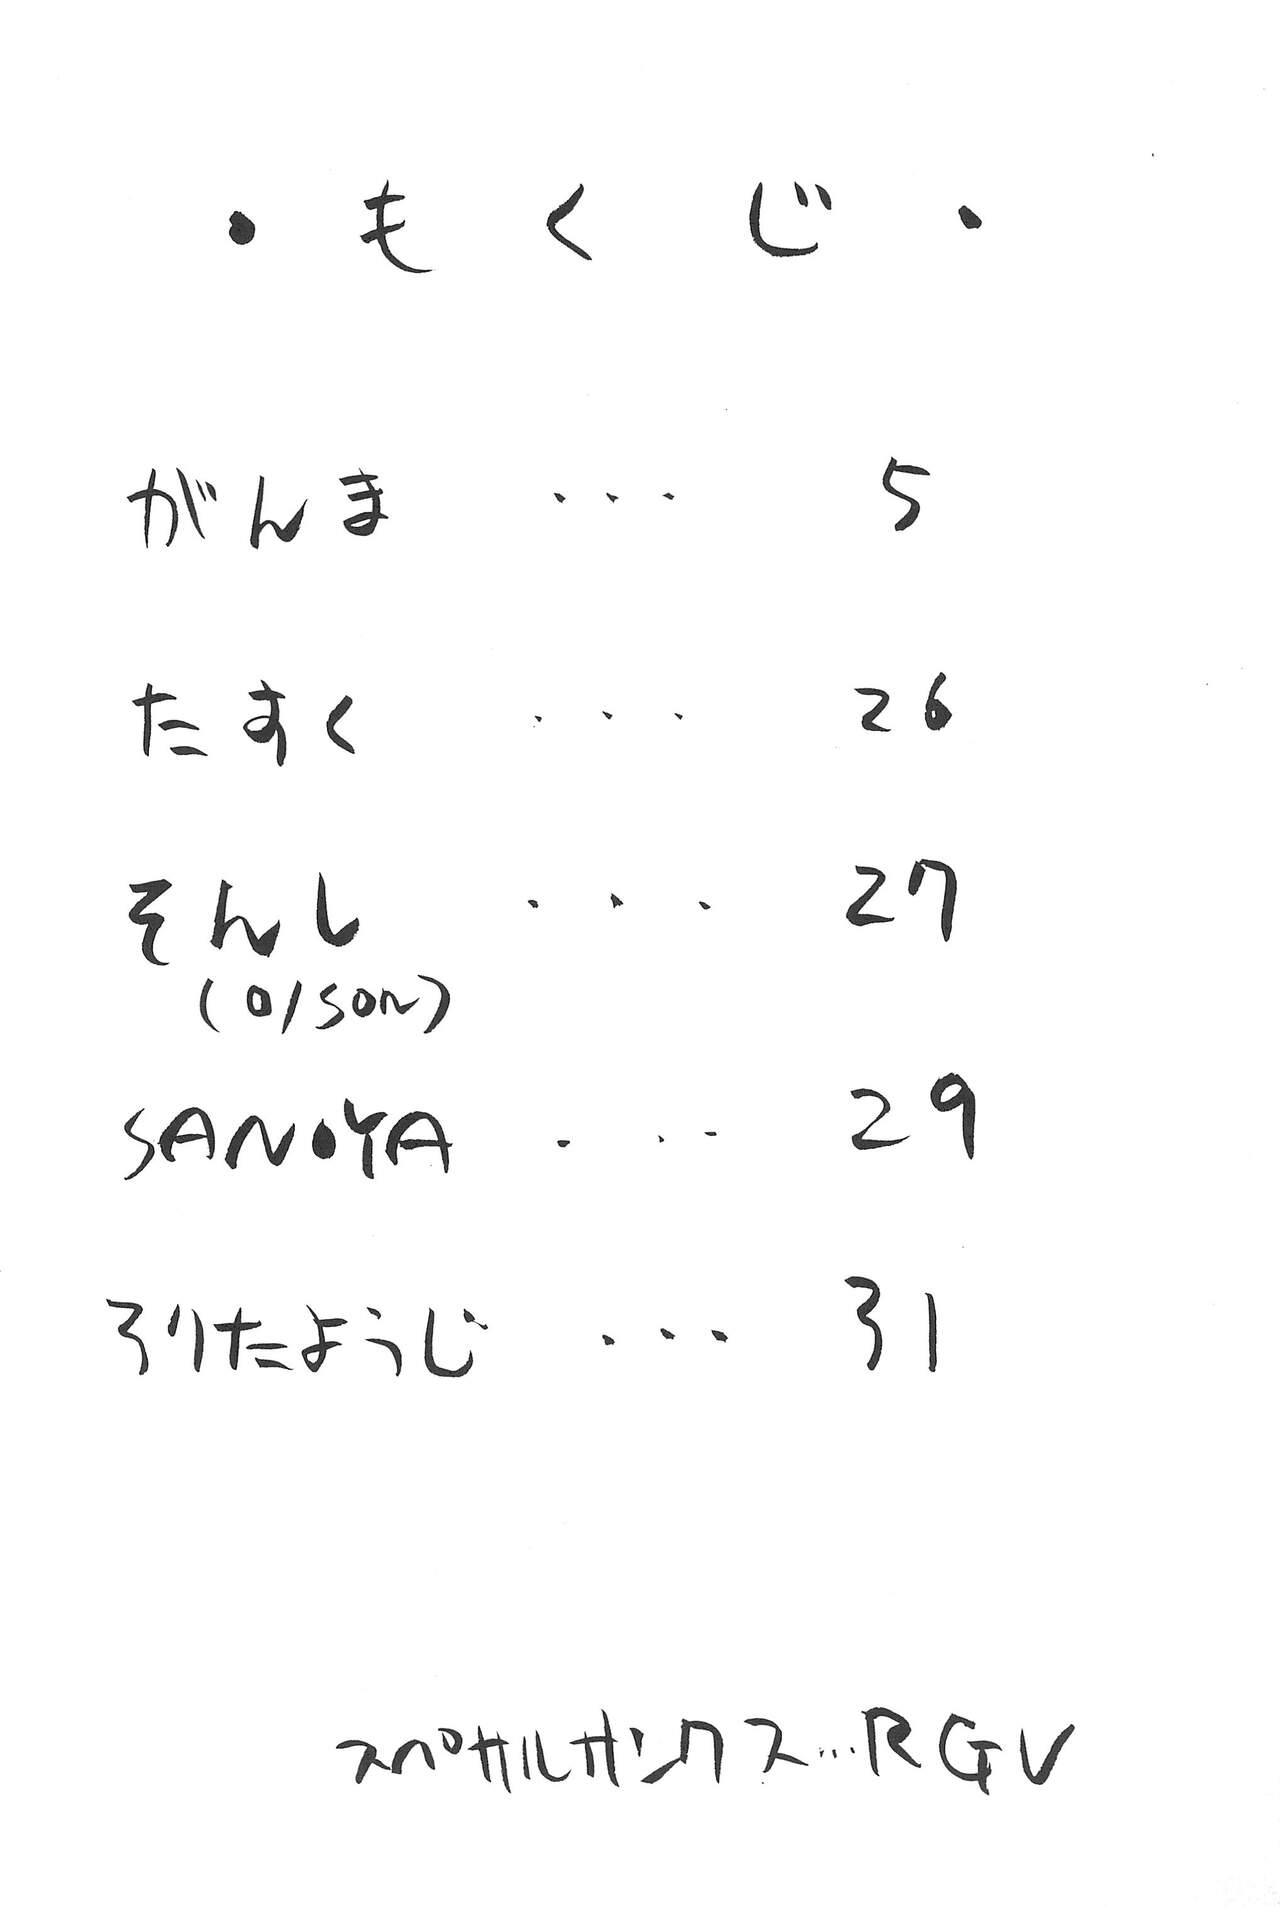 ・もくじ・
がんま ・・・ 5
たすく ・・・ 26
そんし ・・・ 27
(0/SON)
SANOYA ・・・ 29
ろりたようじ ・・・ 31
スペサルサンクス…RGV